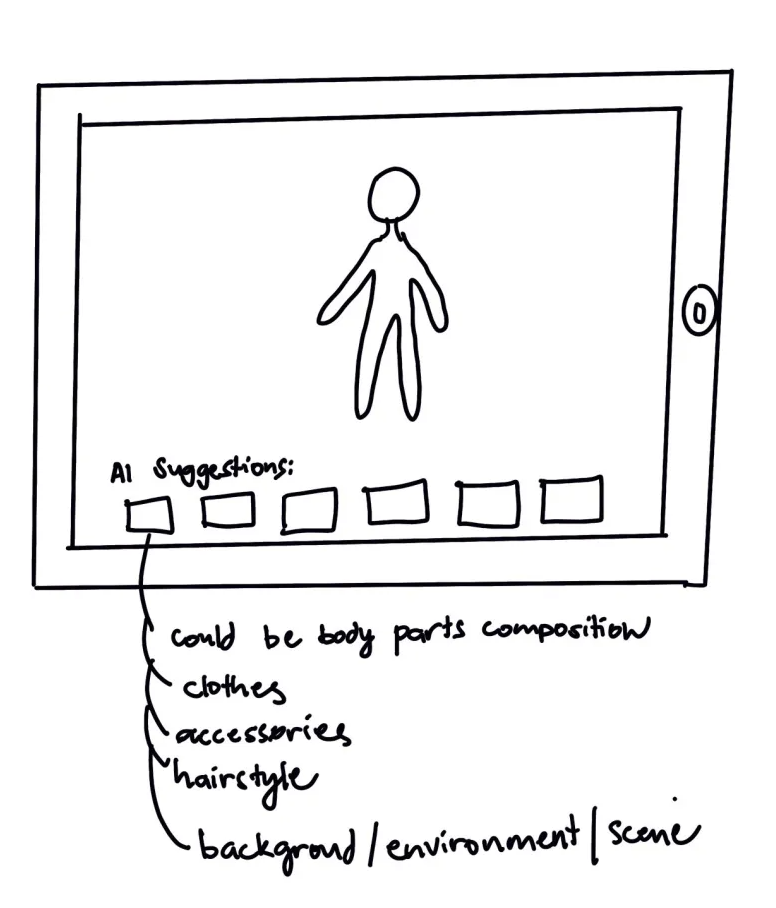 AI Suggestions:
could be body parts composition
clothes
accessories
hairstyle
backgroud/environment/scene